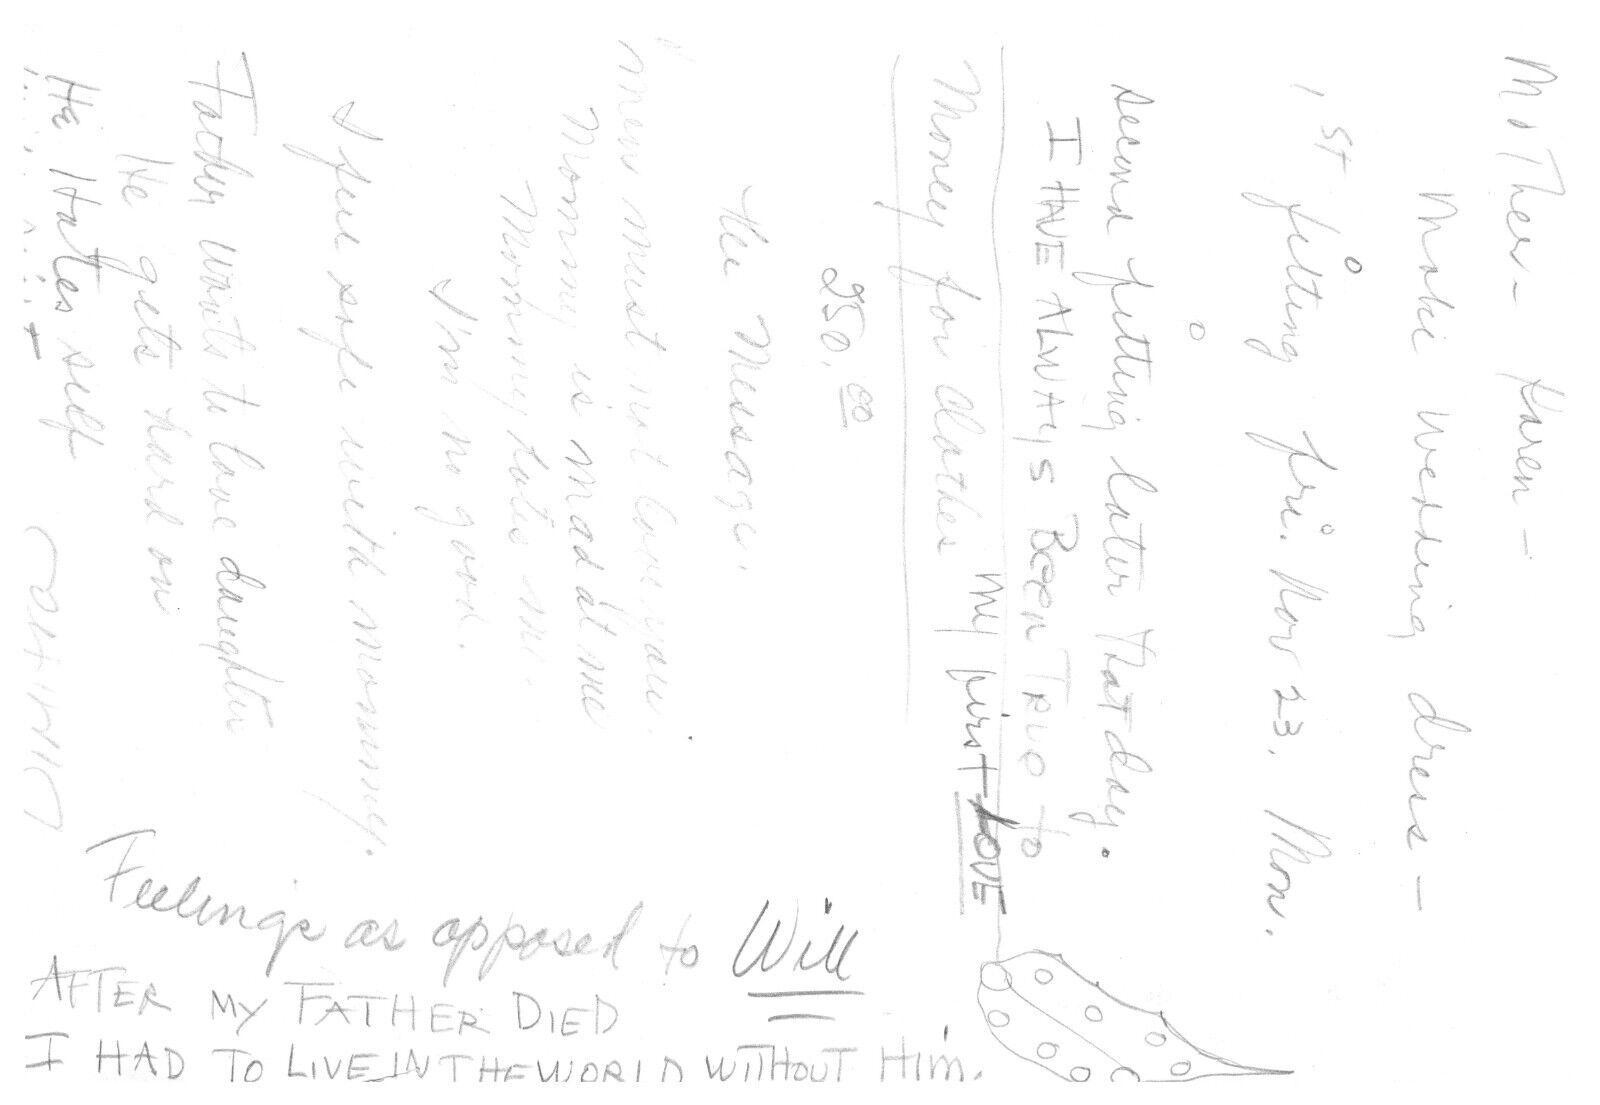 MoTher - Karen -
Maki Wedding dress -
1st fitting fri. Nov 23. Mon.
second fitting later That day.
I HAVE ALWAYS BEEN TRUE to
my first LOVE
Money for clothes
250.00
the Message.
men must not love you.
Mommy is mad at me
Mommy hate me.
I'm no good.
I feel safe with mommy.
Father wants to love daughter
He gets hard on
He Hates self
Feelings as opposed to Will
AFTER MY FATHER DIED
I HAD TO LIVE IN THE WORLD WITHOUT Him.